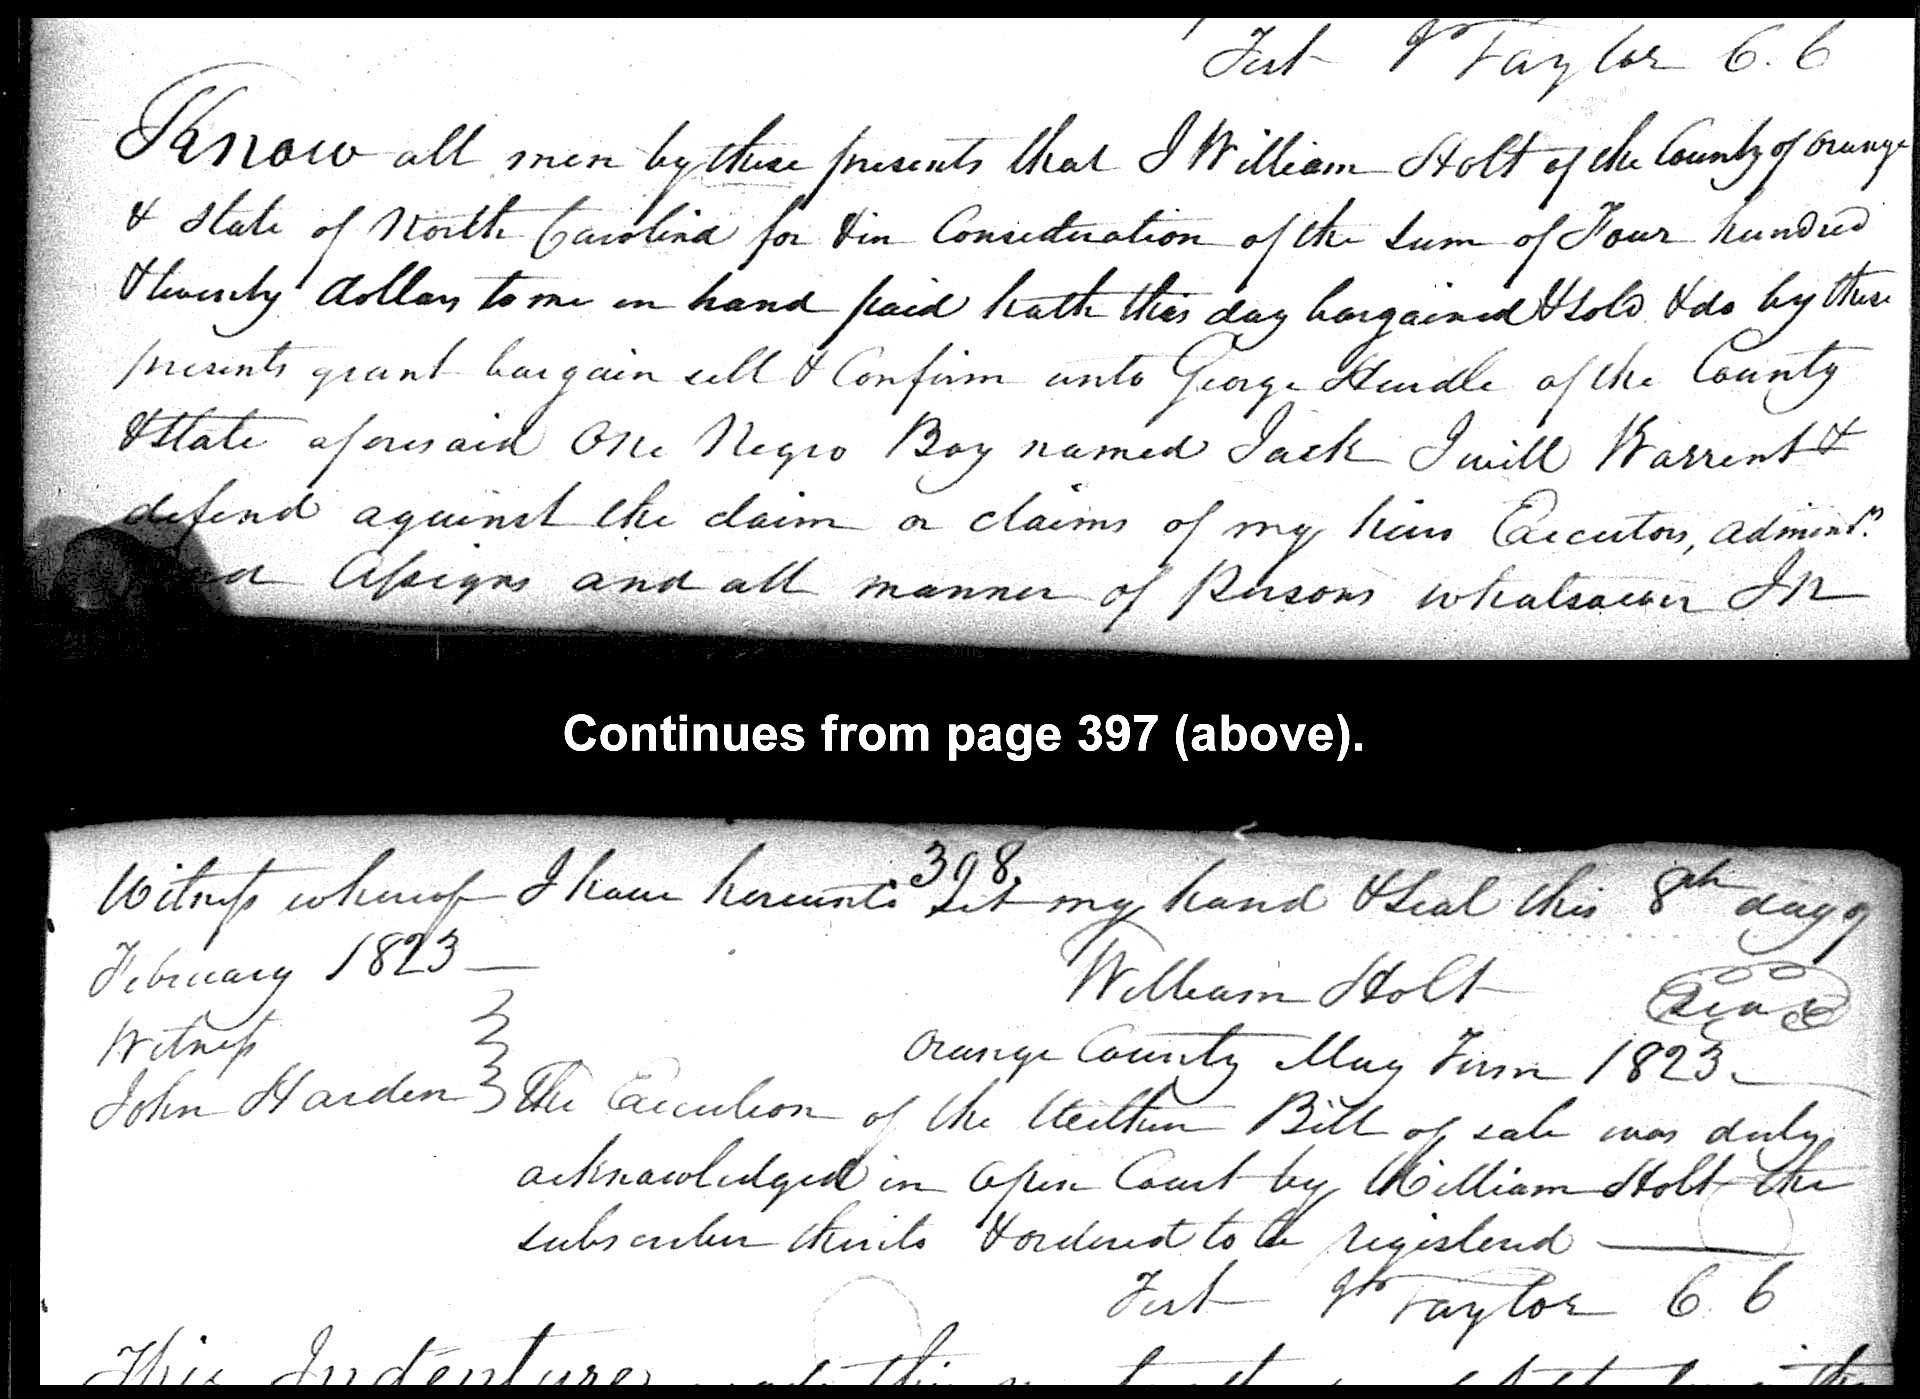 Test Jno Taylor C. C
Know all men by these presents that I William Holt of the County of Orange
& State of North Carolina for & in Consideration of the sum of Four hundred
& twenty dollars to me in hand paid hath this day bargained & sold & do by these
presents grant bargain sell & Confirm unto George Hurdle of the County
& State aforesaid One Negro Boy named Jack I will Warrent &
defend against the claim or claims of my heirs Executors, Admint.rs
and Assigns and all manner of Persons whatsoever In
Continues from page 397 (above).
398.
Witness whereof I have hereunto Set my hand & Seal this 8th day of
February 1823
William Holt Seal
Witness
Orange County May Term 1823
John Harden
The Execution of the Written Bill of sale was duly
acknowledged in Open Court by William Holt the
subscriber thereto & ordered to be registered
Test Jno Taylor C. C
This Indenture made this